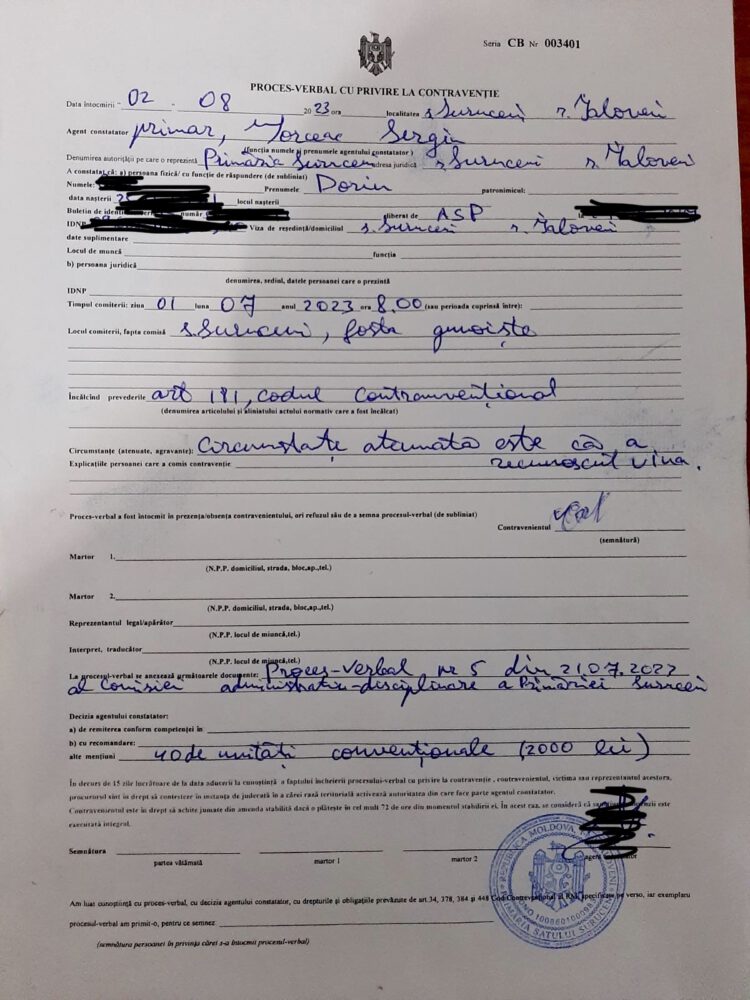 Seria CB Nr 003401
PROCES-VERBAL CU PRIVIRE LA CONTRAVENȚIE
Data întocmirii " 02 - 08 2023 ora localitatea s. Suruceni r. Ialoveni
Agent constatator primar, Sergiu
(funcția numele și prenumele agentului constatator)
Denumirea autorității pe care o reprezintă Primăria Suruceni adresa juridică s. Suruceni r. Ialoveni
A constatat că: a) persoana fizică/ cu funcție de răspundere (de subliniat)
Numele: Prenumele Dorin patronimicul:
data nașterii locul nașterii
Buletin de număr eliberat de ASP la
IDNP Viza de reședință/domiciliul s. Suruceni r. Ialoveni
date suplimentare
Locul de muncă funcția
b) persoana juridică
denumirea, sediul, datele persoanei care o prezintă
IDNP
Timpul comiterii: ziua 01 luna 07 anul 2023 ora 8.00 (sau perioada cuprinsă între):
Locul comiterii, fapta comisă s. Suruceni, fosta gunoiște
Încălcînd prevederile art 181, codul Contravențional
(denumirea articolului și aliniatului actului normativ care a fost încălcat)
Circumstanțe (atenuate, agravante): Circumstațe atenuată este că a
Explicațiile persoanei care a comis contravenție recunoscut vina.
Proces-verbal a fost întocmit în prezența/absența contravenientului, ori refuzul său de a semna procesul-verbal (de subliniat)
Contravenientul
(semnătură)
Martor 1.
(N.P.P. domiciliul, strada, bloc,ap.,tel.)
Martor 2.
(N.P.P. domiciliul, strada, bloc,ap.,tel.)
Reprezentantul legal/apărător
(N.P.P. locul de miuncă,tel.)
Interpret, traducător
(N.P.P. locul de miuncă,tel.)
La procesul-verbal se anexează următoarele documente: Proces-Verbal nr 5 din 21.07.2023
al Comisiei administrativ-disciplinare a Primăriei Suruceni
Decizia agentului constatator:
a) de remiterea conform competenței în
b) cu recomandare:
alte mențiuni 40 de unități convenționale (2000 lei)
În decurs de 15 zile lucrătoare de la data aducerii la cunoștință a faptului încheierii procesului-verbal cu privire la contravenție, contravenientul, victima sau reprezentantul acestora,
procurorul sînt în drept să contesteze în instanța de judecată în a cărei rază teritorială activează autoritatea din care face parte agentul constatator.
Contravenientul este în drept să achite jumate din amenda stabilită dacă o plătește în cel mult 72 de ore din momentul stabilirii ei. În acest caz, se consideră că este
executată integral.
Semnătura
partea vătămată martor 1 martor 2 agent
Am luat cunoștință cu proces-verbal, cu decizia agentului constatator, cu drepturile și obligațiile prevăzute de art.34, 378, 384 și 448 Cod Contravențional al RM, specificate pe verso, iar exemplaru
procesului-verbal am primit-o, pentru ce semnez
(semnătura persoanei în privința cărei s-a întocmit procesul-verbal)
REPUBLICA MOLDOVA
PRIMĂRIA SATULUI SURUCENI